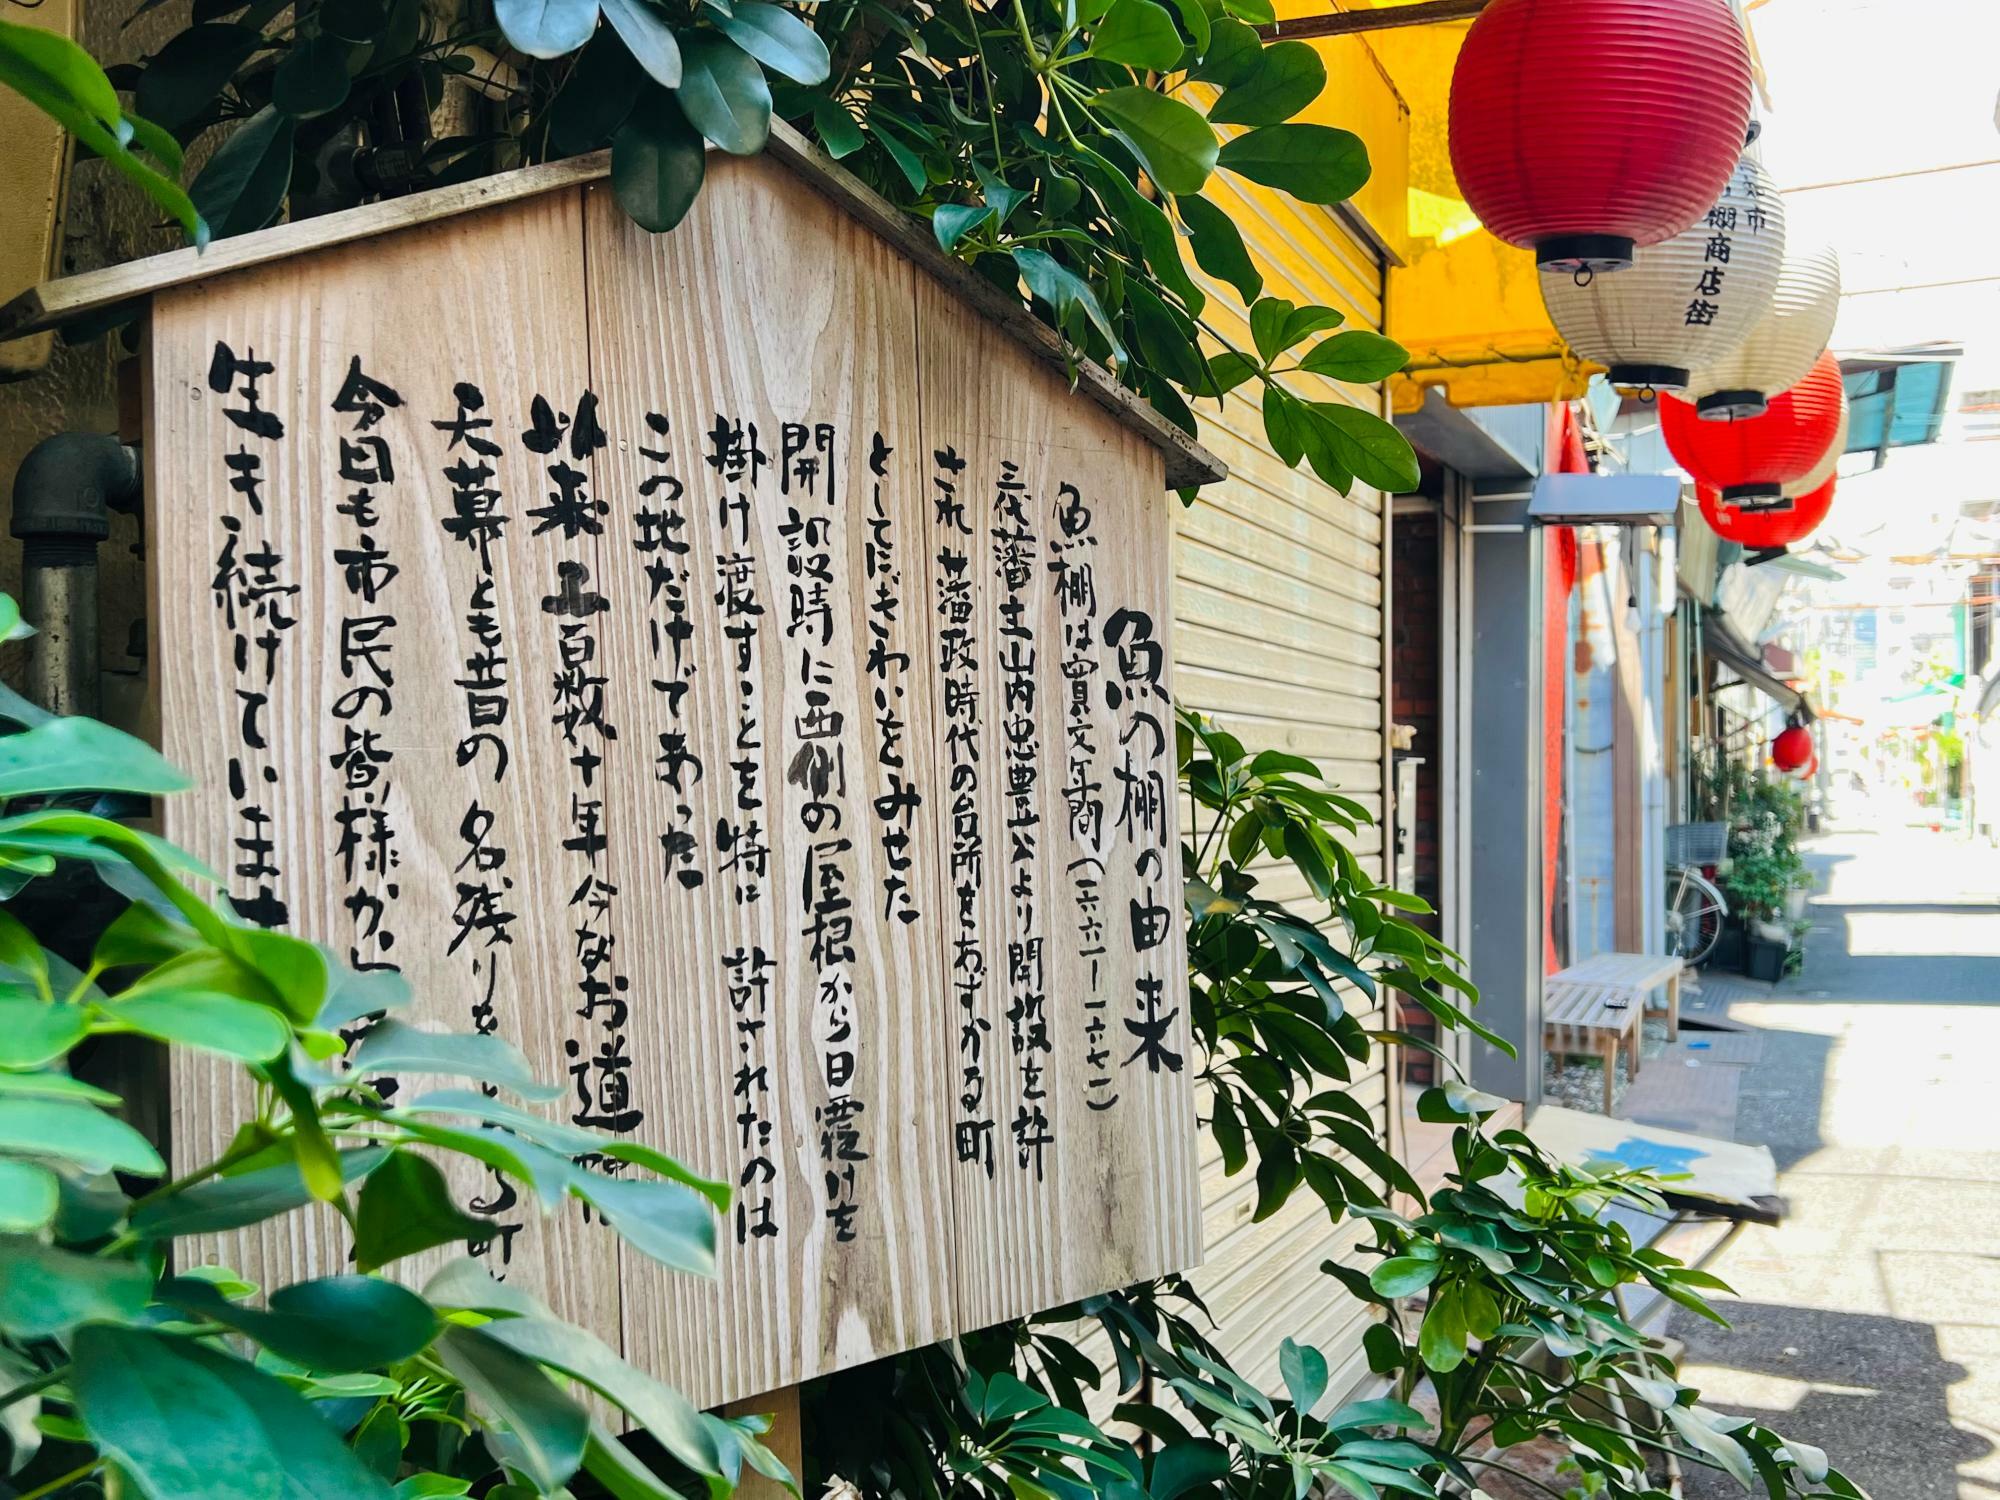 魚の棚の由来
魚棚は寛文年間(一六六一—一六七一)
三代藩主山内忠豊公より開設を許
され 藩政時代の台所をあずかる町
としてにぎわいをみせた
開設時に西側の屋根から日覆けを
掛け渡すことを特に 許されたのは
この地だけであった
以来 三百数十年 今なお道
天幕とも昔の 名残りを
今日も市民の皆様が
生き続けています
市
棚商店街